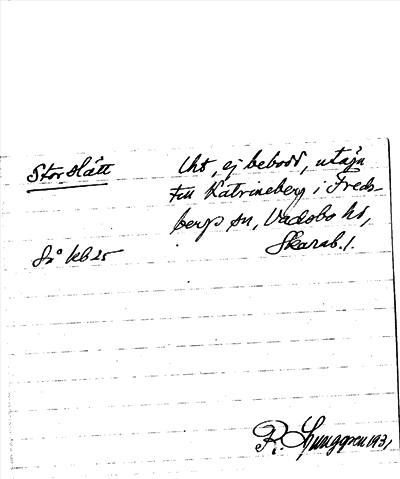 Storslätt
Uht, ej bebodd, utägn
till Katrineberg i Freds-
bergs sn, Vadsbo hd,
Skarab. l.
So kb 25
R. Ljunggren 1931